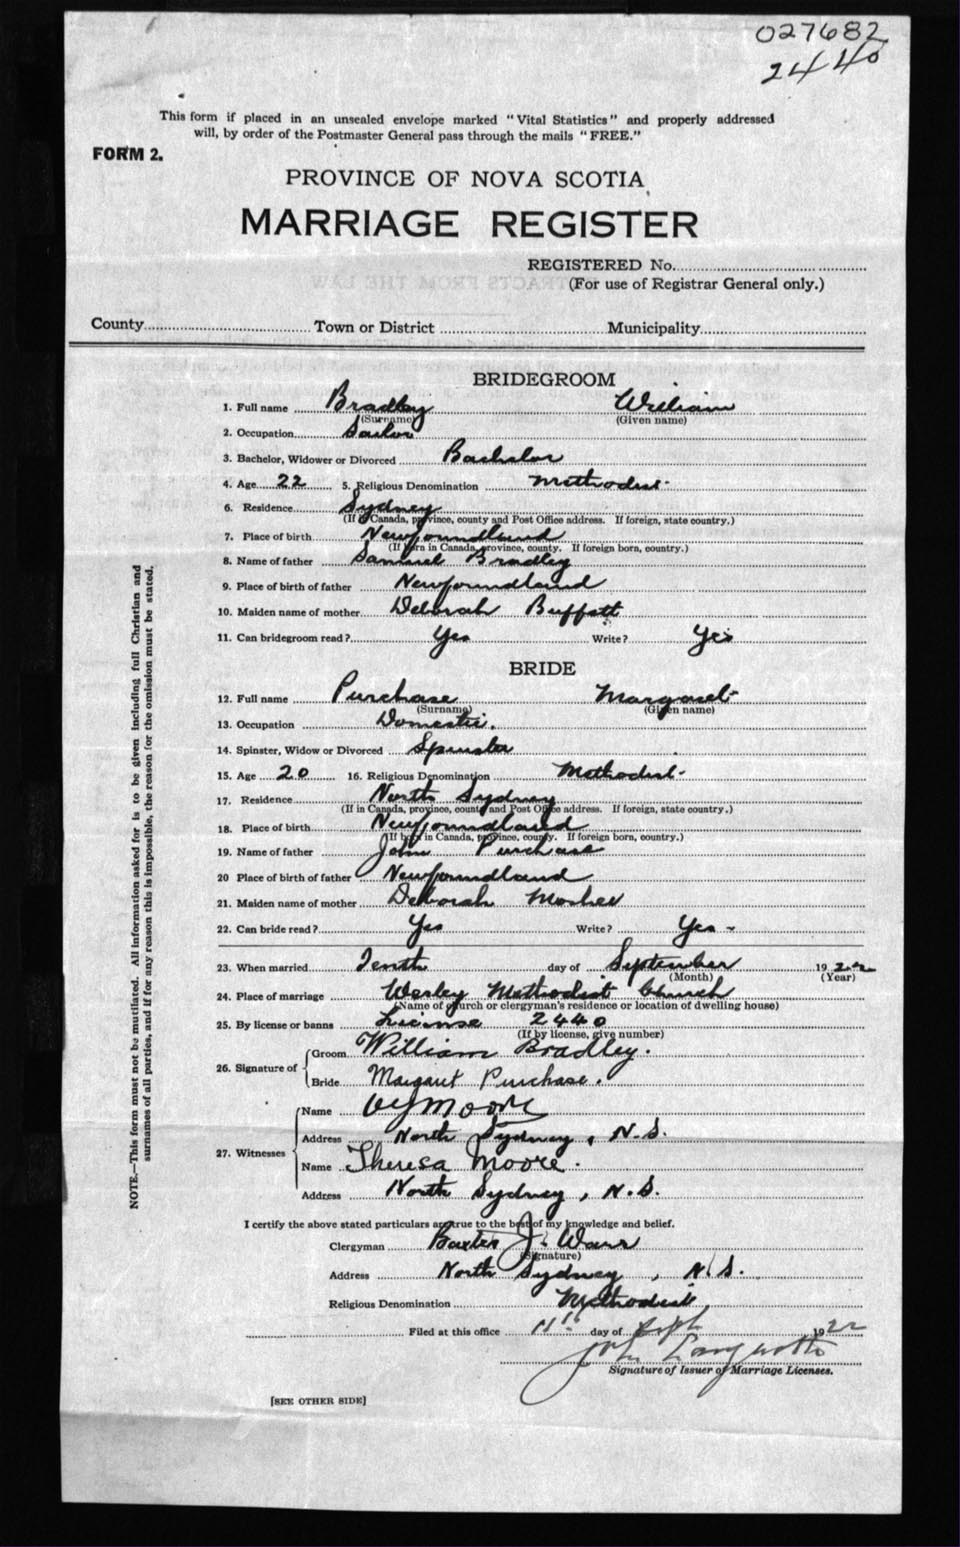 027682
2440
This form if placed in an unsealed envelope marked "Vital Statistics" and properly addressed
will, by order of the Postmaster General pass through the mails "FREE."
FORM 2.
PROVINCE OF NOVA SCOTIA
MARRIAGE REGISTER
REGISTERED No.
(For use of Registrar General only.)
County Town or District Municipality
BRIDEGROOM
1. Full name Bradley William
(Surname) (Given name)
2. Occupation Sailor
3. Bachelor, Widower or Divorced Bachelor
4. Age 22 5. Religious Denomination Methodist
6. Residence Sydney
(If in Canada, province, county and Post Office address. If foreign, state country.)
7. Place of birth Newfoundland
(If born in Canada, province, county. If foreign born, country.)
8. Name of father Samuel Bradley
9. Place of birth of father Newfoundland
10. Maiden name of mother Deborah Buffett
11. Can bridegroom read? Yes Write? Yes
BRIDE
12. Full name Purchase Margaret
(Surname) (Given name)
13. Occupation Domestic.
14. Spinster, Widow or Divorced Spinster
15. Age 20 16. Religious Denomination Methodist
17. Residence North Sydney
(If in Canada, province, county and Post Office address. If foreign, state country.)
18. Place of birth Newfoundland
(If born in Canada, province, county. If foreign born, country.)
19. Name of father John Purchase
20 Place of birth of father Newfoundland
21. Maiden name of mother Deborah
22. Can bride read? Yes Write? Yes
23. When married Tenth day of September 1922
(Month) (Year)
24. Place of marriage Wesley Methodist Church
(Name of church or clergyman's residence or location of dwelling house)
25. By license or banns License 2440
(If by license, give number)
26. Signature of
Groom William Bradley.
Bride Margaret Purchase.
27. Witnesses
Name Moore
Address North Sydney, N.S.
Name Theresa Moore.
Address North Sydney, N.S.
I certify the above stated particulars are true to the best of my knowledge and belief.
Clergyman Baxter J.
(Signature)
Address North Sydney, N.S.
Religious Denomination Methodist
Filed at this office 11th day of Sept 1922
John
Signature of Issuer of Marriage Licenses.
[SEE OTHER SIDE]
NOTE.—This form must not be mutilated. All information asked for is to be given including full Christian and
surnames of all parties, and if for any reason this is impossible, the reason for the omission must be stated.